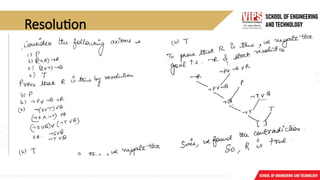 Resolution
VIPS
SCHOOL OF ENGINEERING
AND TECHNOLOGY
Consider the following axioms
1) P
2) (P∧Q)→R
3) (S∨T)→Q
4) T
Prove that R is true by resolution
(1) P
(2) ¬P∨¬Q∨R
(3) ¬(S∨T)∨Q
(¬S∧¬T)∨Q
(¬S∨Q)∧(¬T∨Q)
¬S∨Q
¬T∨Q
(4) T
, we negate the
(4) T
To prove that R is true, we negate the
goal i.e. ¬R & start resolution
¬R
¬P∨¬Q∨R
¬P∨¬Q
P
¬Q
¬T∨Q
¬T
T
{ }
Since, we found the contradiction.
So, R is true.
SCHOOL OF ENGINEERING AND TECHNOLOGY